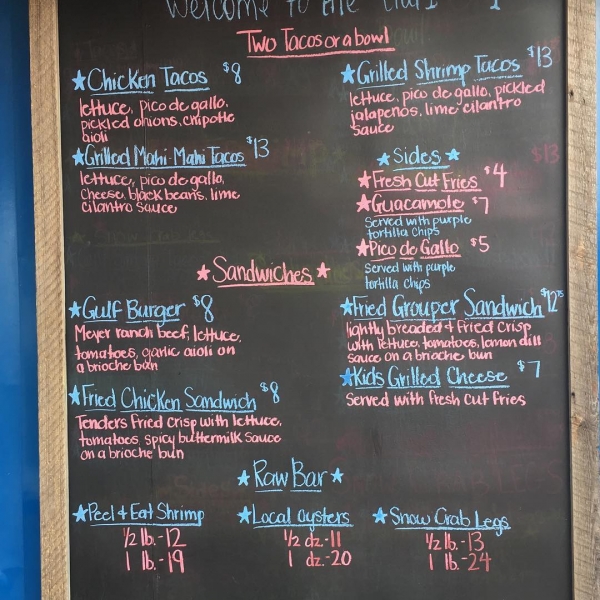 Welcome to the
Two Tacos or a bowl
★Chicken Tacos $8
lettuce, pico de gallo,
pickled onions, chipotle
aioli
★Grilled Mahi-Mahi Tacos $13
lettuce, pico de gallo,
cheese, black beans, lime
cilantro sauce
★Grilled Shrimp Tacos $13
lettuce, pico de gallo, pickled
jalapenos, lime cilantro
sauce
★Sides★
★Fresh Cut Fries $4
★Guacamole $7
Served with purple
tortilla chips
★Pico de Gallo $5
Served with purple
tortilla chips
★Sandwiches★
★Gulf Burger $8
Meyer ranch beef, lettuce,
tomatoes, garlic aioli on
a brioche bun
★Fried Chicken Sandwich $8
Tenders fried crisp with lettuce,
tomatoes, spicy buttermilk sauce
on a brioche bun
★Fried Grouper Sandwich $12.75
lightly breaded & fried crisp
with lettuce, tomatoes, lemon dill
sauce on a brioche bun
★Kids Grilled Cheese $7
Served with fresh cut fries
★Raw Bar★
★Peel & Eat Shrimp
1/2 lb.-12
1 lb.-19
★Local oysters
1/2 dz.-11
1 dz.-20
★Snow Crab Legs
1/2 lb.-13
1 lb.-24